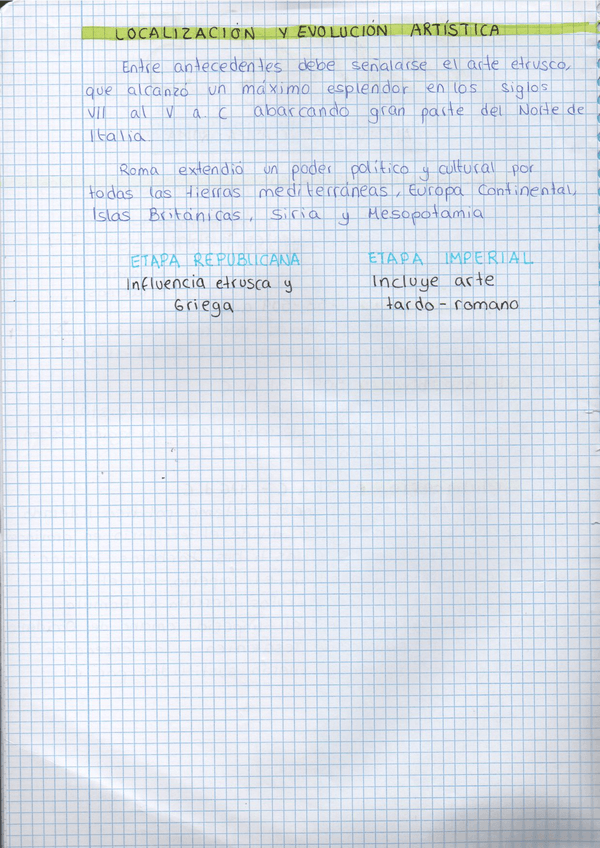 LOCALIZACIÓN Y EVOLUCIÓN ARTÍSTICA
Entre antecedentes debe señalarse el arte etrusco,
que alcanzó un máximo esplendor en los siglos
VII al V a.C abarcando gran parte del Norte de
Italia.
Roma extendió un poder político y cultural por
todas las tierras mediterráneas, Europa Continental,
Islas Británicas, Siria y Mesopotamia
ETAPA REPUBLICANA ETAPA IMPERIAL
Influencia etrusca y Incluye arte
Griega tardo-romano